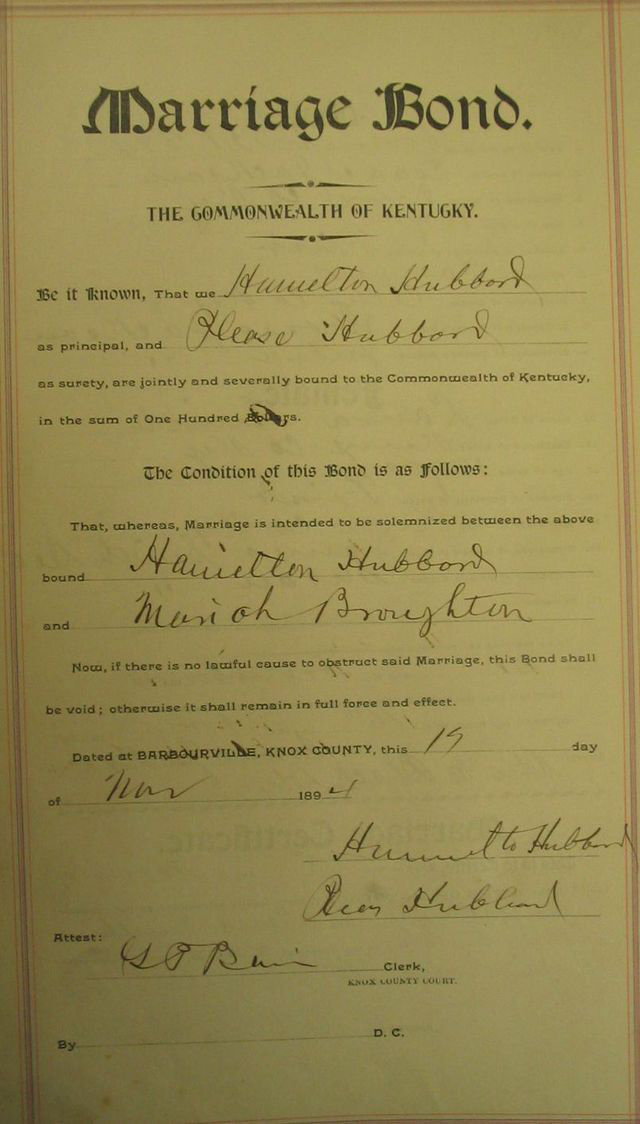 Marriage Bond.
THE COMMONWEALTH OF KENTUCKY.
Be it Known, That we Hamelton Hubbard
as principal, and Please Hubbard
as surety, are jointly and severally bound to the Commonwealth of Kentucky,
in the sum of One Hundred Dollars.
The Condition of this Bond is as Follows:
That, whereas, Marriage is intended to be solemnized between the above
bound Hamelton Hubbard
and Mariah Broughton
Now, if there is no lawful cause to obstruct said Marriage, this Bond shall
be void; otherwise it shall remain in full force and effect.
Dated at BARBOURVILLE, KNOX COUNTY, this 19 day
of Nov 1894
Hubbard
Hubbard
Attest:
Clerk,
KNOX COUNTY COURT.
By D. C.